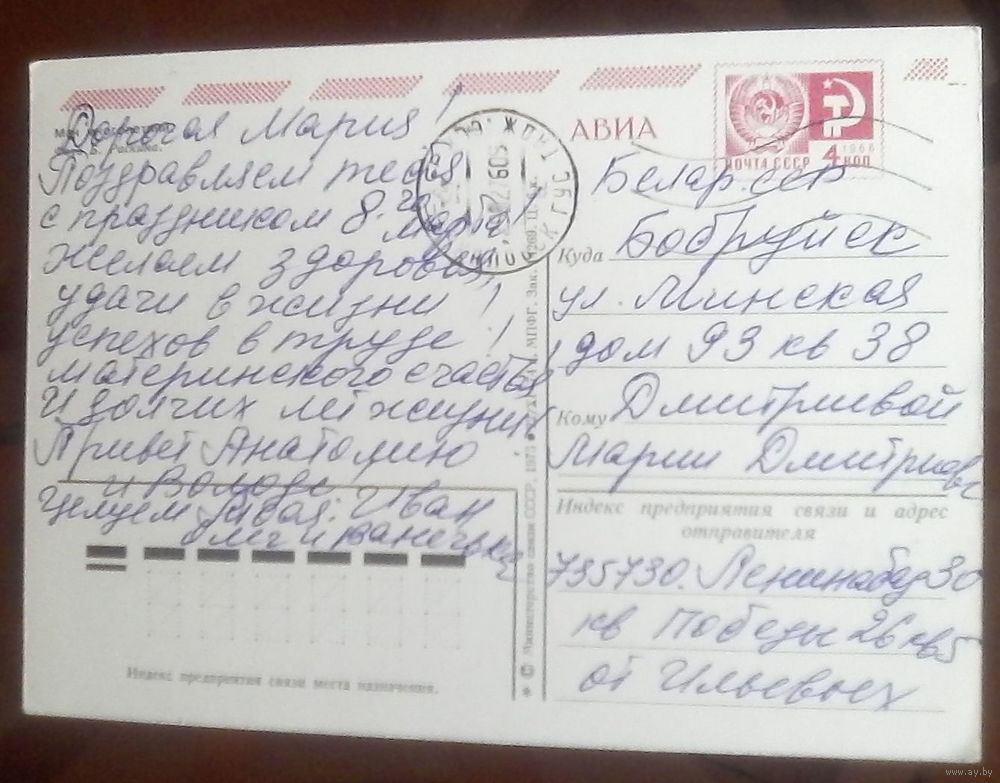 Дорогая Мария!
Поздравляем тебя
с праздником 8го марта!
Желаем здоровья,
удачи в жизни!
успехов в труде!
материнского счастья
и долгих лет жизни
Привет Анатолию
и Володе
Целуем Иван
Олег и
Индекс предприятия связи места назначения.
© Министерство связи СССР, 1975
АВИА
ПОЧТА СССР 4 КОП
1966
Белар. ССР
Куда Бобруйск
ул. Минская
дом 93 кв 38
Кому Дмитриевой
Марии Дмитриевс
Индекс предприятия связи и адрес
отправителя
735730. Ленинабад 30
кв Победы 26 кв 5
от Ильевых
www.ay.by